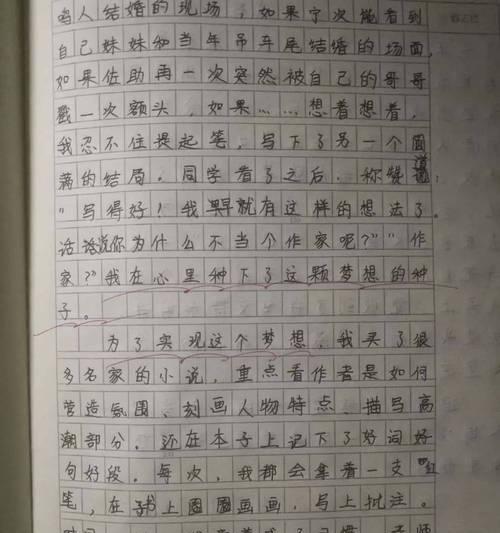 鸣人结婚的现场,如果宁次能看到
自己妹妹和当年吊车尾结婚的场面,
如果佐助再一次突然被自己的哥哥
戳一次额头,如果……想着想着,
我忍不住提起笔,写下了另一个圆
满的结局。同学看了之后,称赞道:
"写得好!我早就有这样的想法了。
话说你为什么不当个作家呢?""作
家?"我在心里种下了这颗梦想的种
子。
为了实现这个梦想,我买了很
多名家的小说,重点看作者是如何
营造氛围、刻画人物特点、描写高
潮部分,还在本子上记下了好词好
句好段。每次,我都会拿着一支红
笔,在书上圈圈画画,写上批注。
老师